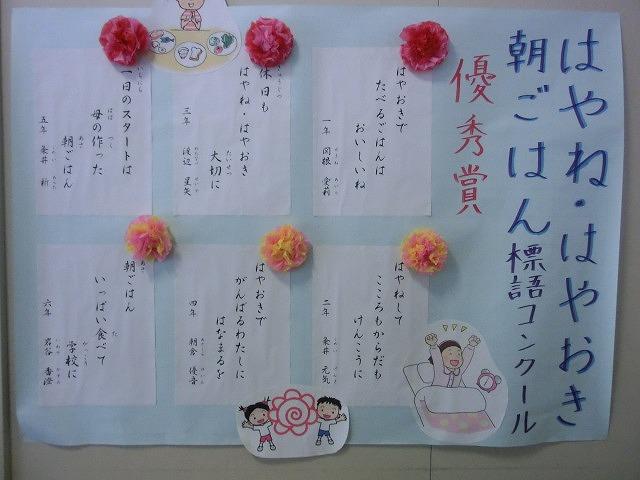 はやね・はやおき
朝ごはん標語コンクール
優秀賞
はやおきで
たべるごはんは
おいしいね
一年 関根 愛莉
休日も
はやね・はやおき
大切に
三年 渡辺 星矢
一日のスタートは
母の作った
朝ごはん
五年 粂井 新
はやねして
こころもからだも
けんこうに
二年 粂井 元気
はやおきで
がんばるわたしに
はなまるを
四年 朝倉 優音
朝ごはん
いっぱい食べて
学校に
六年 岩谷 香澄